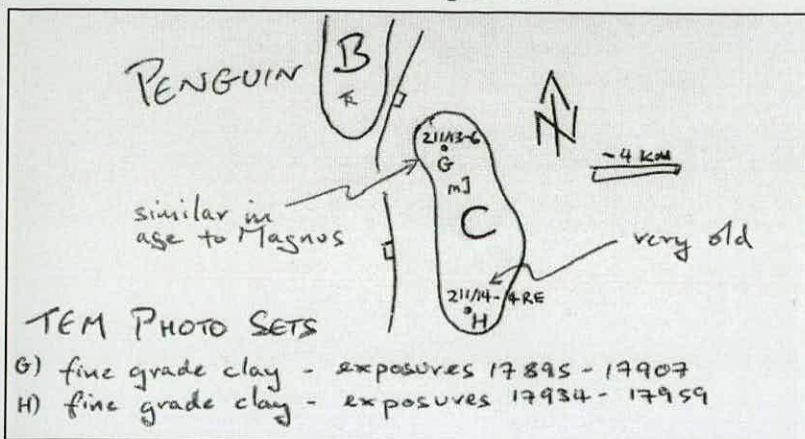 PENGUIN
B
TR
211/13-6
G
mJ
C
N
~4 KM
similar in
age to Magnus
very old
211/14-4RE
H
TEM PHOTO SETS
G) fine grade clay - exposures 17895 - 17907
H) fine grade clay - exposures 17934 - 17959